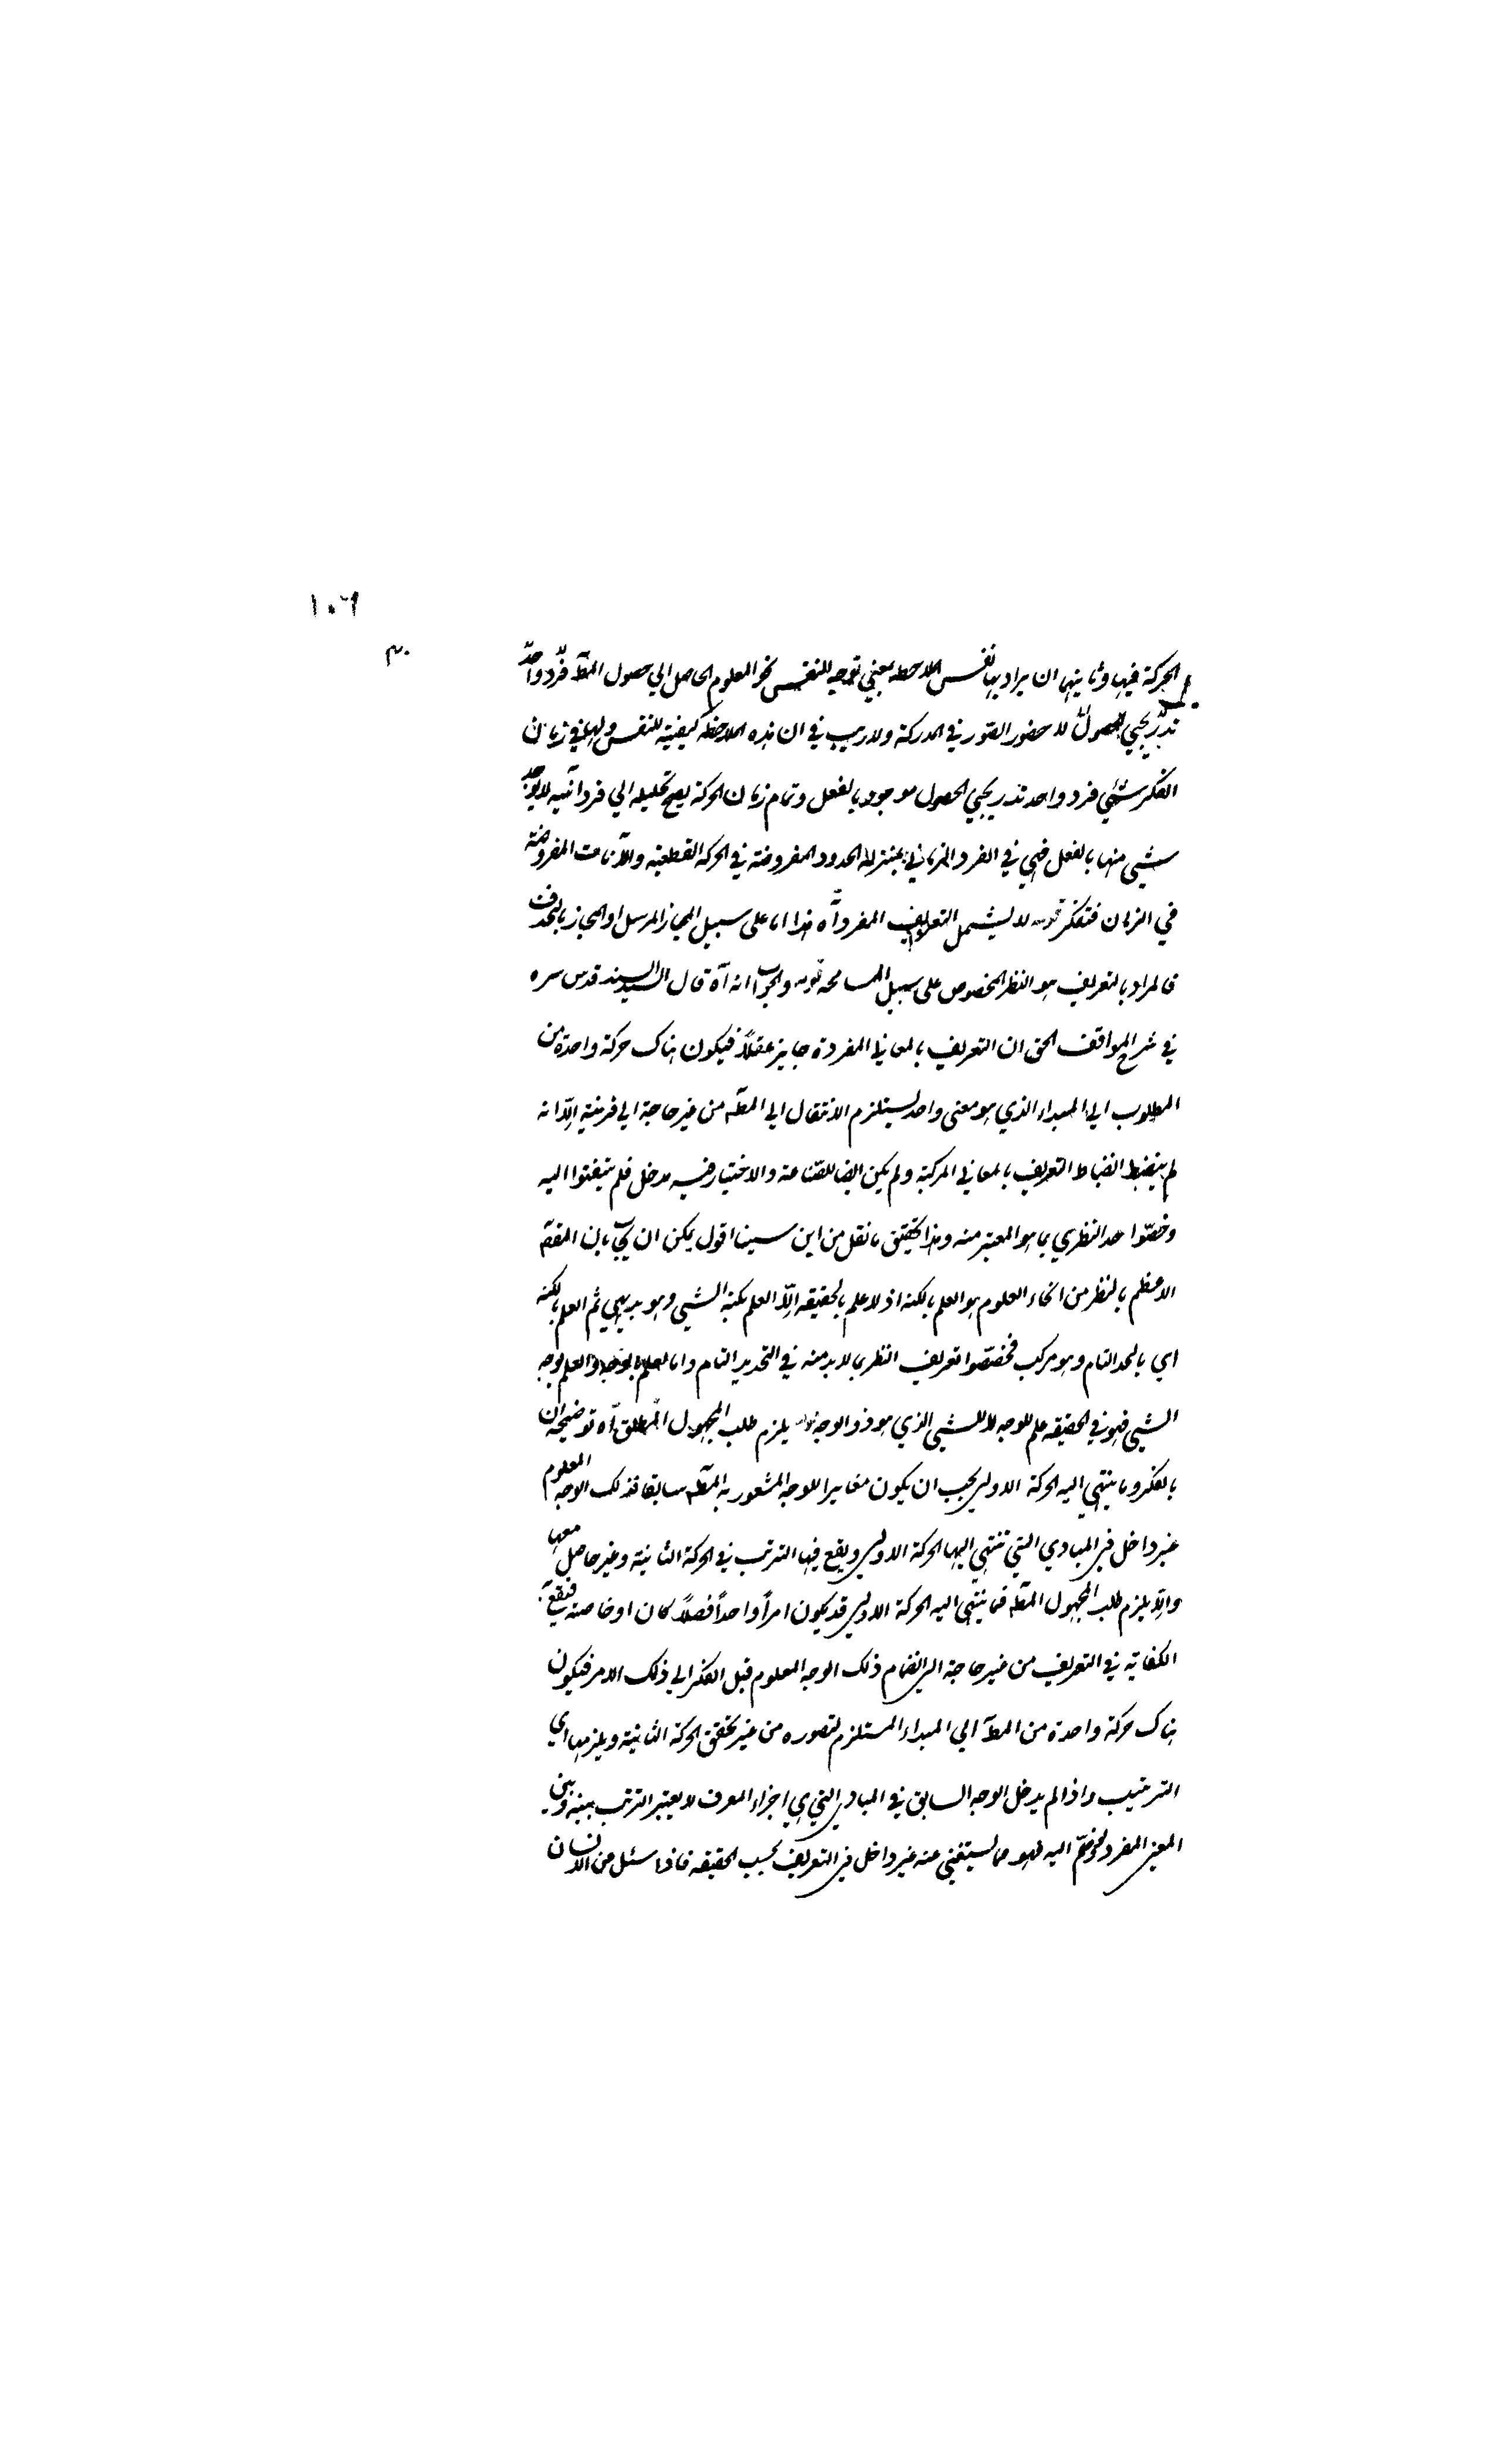 ١٠٦
٣٠
الحركة فيها وثانيها ان يراد بها نفس الملاحظة بمعنى توجه النفس نحو المعلوم الحاصل الي حصول المط فرد واحد
تدريجي الحصول لا حضور الصور في المدركة ولا ريب في ان هذه الملاحظة كيفية للنفس ولها في زمان
الفكر شيئ فرد واحد تدريجي الحصول موجود بالفعل وتمام زمان الحركة يصح تحليله الي فرد آنيه لا يوجد
شيئ منها بالفعل فهي في الفرد الزماني بمنزلة الحدود المفروضة في الحركة القطعية والآنات المفروضة
في الزمان فتفكر قوله لا يشمل التعريف المفرد آه هذا اما على سبيل المجاز المرسل او المجاز بالحذف
فالمراد بالتعريف هو النظر المخصوص على سبيل المسامحة قوله والجواب انه آه قال السيد السند قدس سره
في شرح المواقف الحق ان التعريف بالمعاني المفردة جايز عقلاً فيكون هناك حركة واحدة من
المطلوب الي المبداء الذي هو معنى واحد يستلزم الانتقال الي المط من غير حاجة الي قرينة الّا انه
لم ينضبط انضباط التعريف بالمعاني المركبة ولم يكن ايضا للصناعة والاختيار فيه مدخل فلم يلتفتوا اليه
وخصّوا حد النظري بما هو المعتبر منه وهذا تحقيق ما نقل من ابن سينا اقول يمكن ان يجاب بان المقصد
الاعظم بالنظر من انحاء العلوم هو العلم بالكنه اذ لا علم بالحقيقة الّا العلم بكنه الشيئ وهو بديهي ثم العلم بالكنه
اي بالحد التام وهو مركب فخصّصوا تعريف النظر بما لا بد منه في التحديد التام واما العلم بالوجه والعلم بوجه
الشيئ فهو في الحقيقة علم للوجه لا للشيئ الذي هو ذو الوجه قوله يلزم طلب المجهول المطلق آه توضيحه ان
بالفكر وما ينتهي اليه الحركة الاولي يجب ان يكون مغايرا للوجه المشعور به المط سابقا فذلك الوجه المعلوم
غير داخل في المبادي التي تنتهي اليها الحركة الاولي ويقع فيها الترتيب في الحركة الثانية وغير حاصل معها
والّا يلزم طلب المجهول المط فما ينتهي اليه الحركة الاولي قد يكون امراً واحداً فصلاً كان او خاصة فيقع به
الكفاية في التعريف من غير حاجة الي انضمام ذلك الوجه المعلوم قبل الفكر الي ذلك الامر فيكون
هناك حركة واحدة من المط الي المبداء المستلزم لتصوره من غير تحقق الحركة الثانية ويلزمها اي
الترتيب واذا لم يدخل الوجه السابق في المبادي التي هي اجزاء المعرف لا يعتبر الترتيب بينه وبين
المعنى المفرد لو ضمّ اليه فهو مما يستغني عنه غير داخل في التعريف بحسب الحقيقة فاذا سئل من الانسان